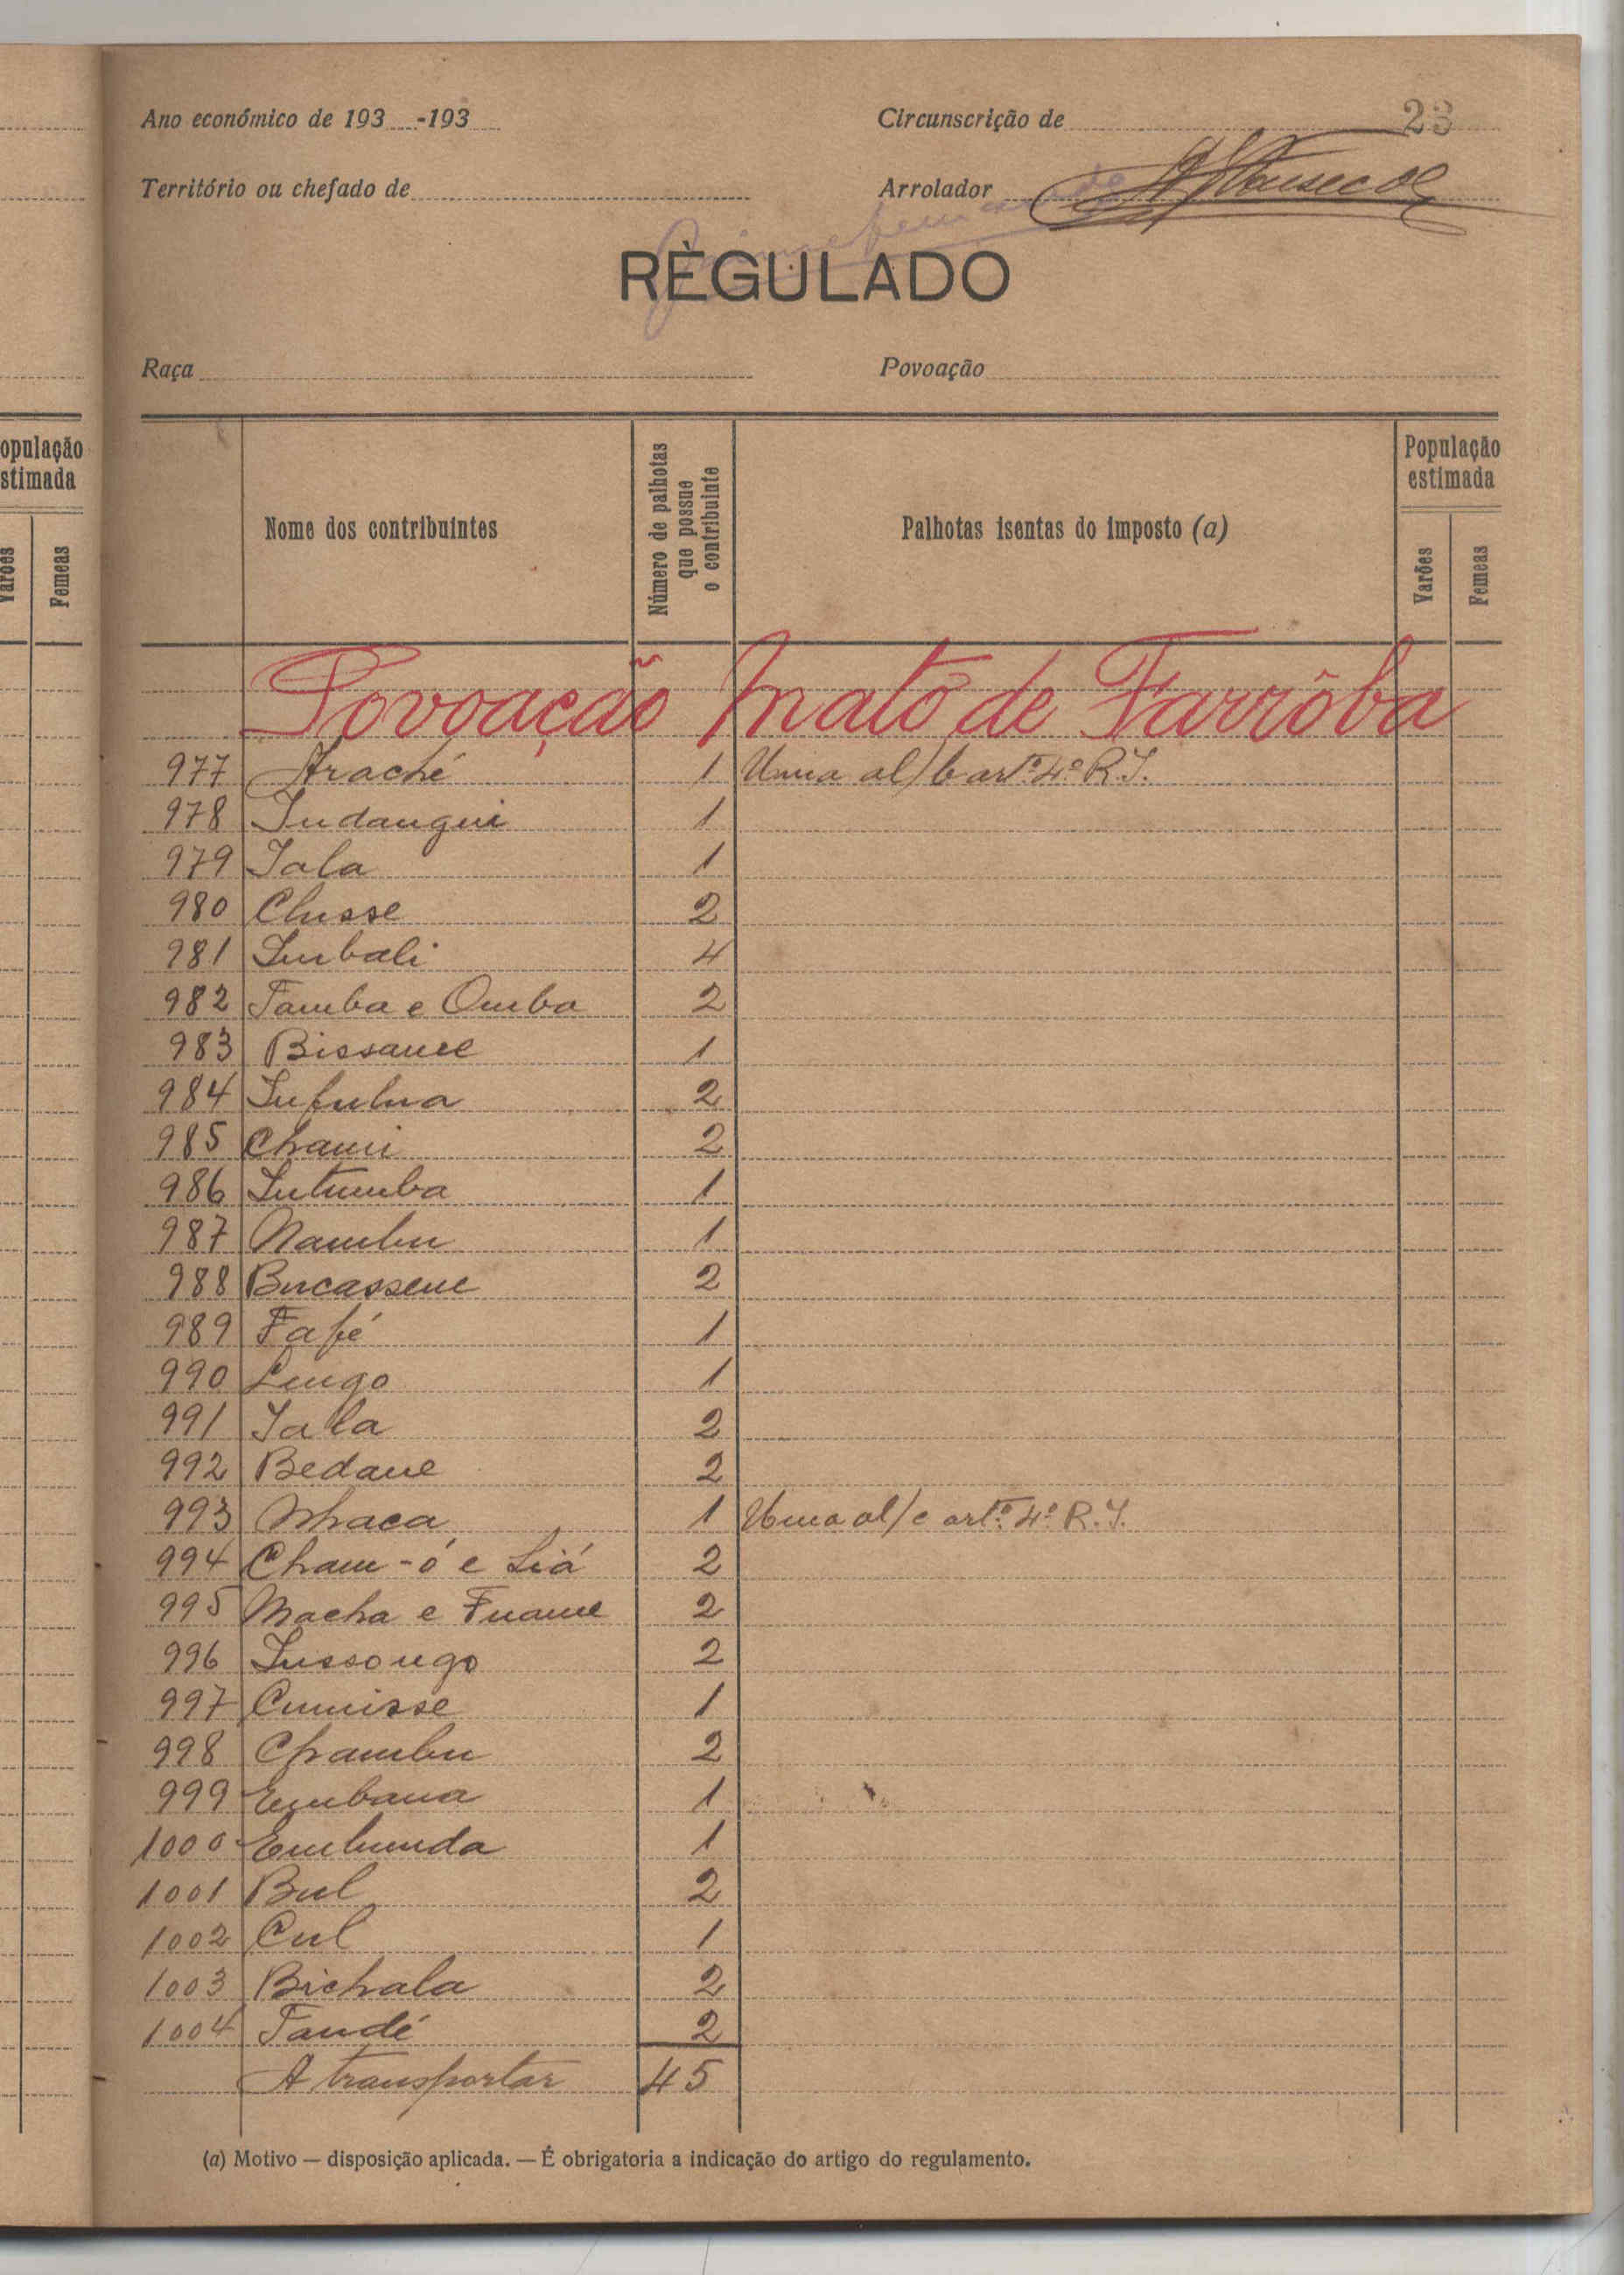 Ano económico de 193 -193
Circunscrição de 23
Território ou chefado de
Arrolador
RÈGULADO
Raça
Povoação
opulação
stimada
Varões
Femeas
Nome dos contribuintes
Número de palhotas
que possue
o contribuinte
Palhotas isentas do imposto (a)
População
estimada
Varões
Femeas
Povoação Mato de Farrôba
977 Araché 1 Uma al/b artº. 4º R.I.
978 Indangui 1
979 Iala 1
980 Clusse 2
981 Imbali 4
982 Famba e Ouba 2
983 Bissaue 1
984 2
985 Chami 2
986 Intumba 1
987 Nambu 1
988 Bucassene 2
989 Fafé 1
990 Lengo 1
991 Iala 2
992 Bedane 2
993 Nhaca 1 Uma al/c artº. 4º R.I.
994 Cham-ó e Liá 2
995 Macha e Fuame 2
996 Inssongo 2
997 Cumisse 1
998 Chambu 2
999 Embana 1
1000 Embunda 1
1001 Bul 2
1002 Cul 1
1003 Bichala 2
1004 Fandé 2
A transportar 45
(a) Motivo — disposição aplicada. — É obrigatoria a indicação do artigo do regulamento.